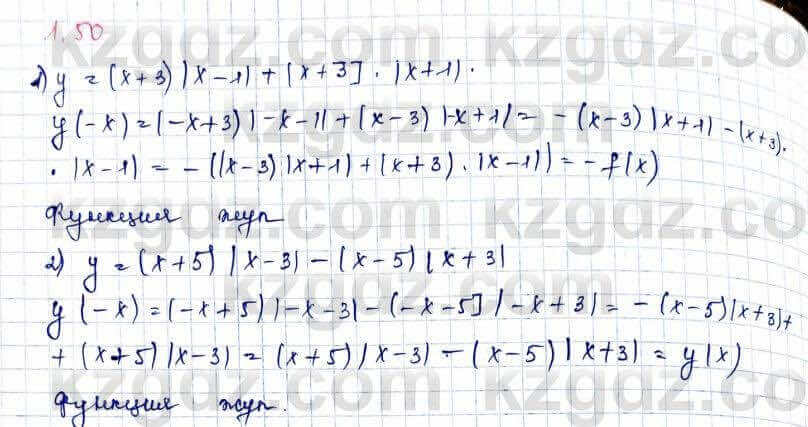 1.50
1) y = (x+3) |x-1| + (x+3] · |x+1| ·
y(-x) = (-x+3) |-x-1| + (x-3) |-x+1| = - (x-3) |x+1| - (x+3) ·
· |x-1| = - ((x-3) |x+1| + (x+3) · |x-1|) = - f(x)
Функция жуп
2) y = (x+5) |x-3| - (x-5) |x+3|
y(-x) = (-x+5) |-x-3| - (-x-5] |-x+3| = - (x-5) |x+3| +
+ (x+5) |x-3| = (x+5) |x-3| - (x-5) |x+3| = y(x)
функция жуп.
kzgdz.com